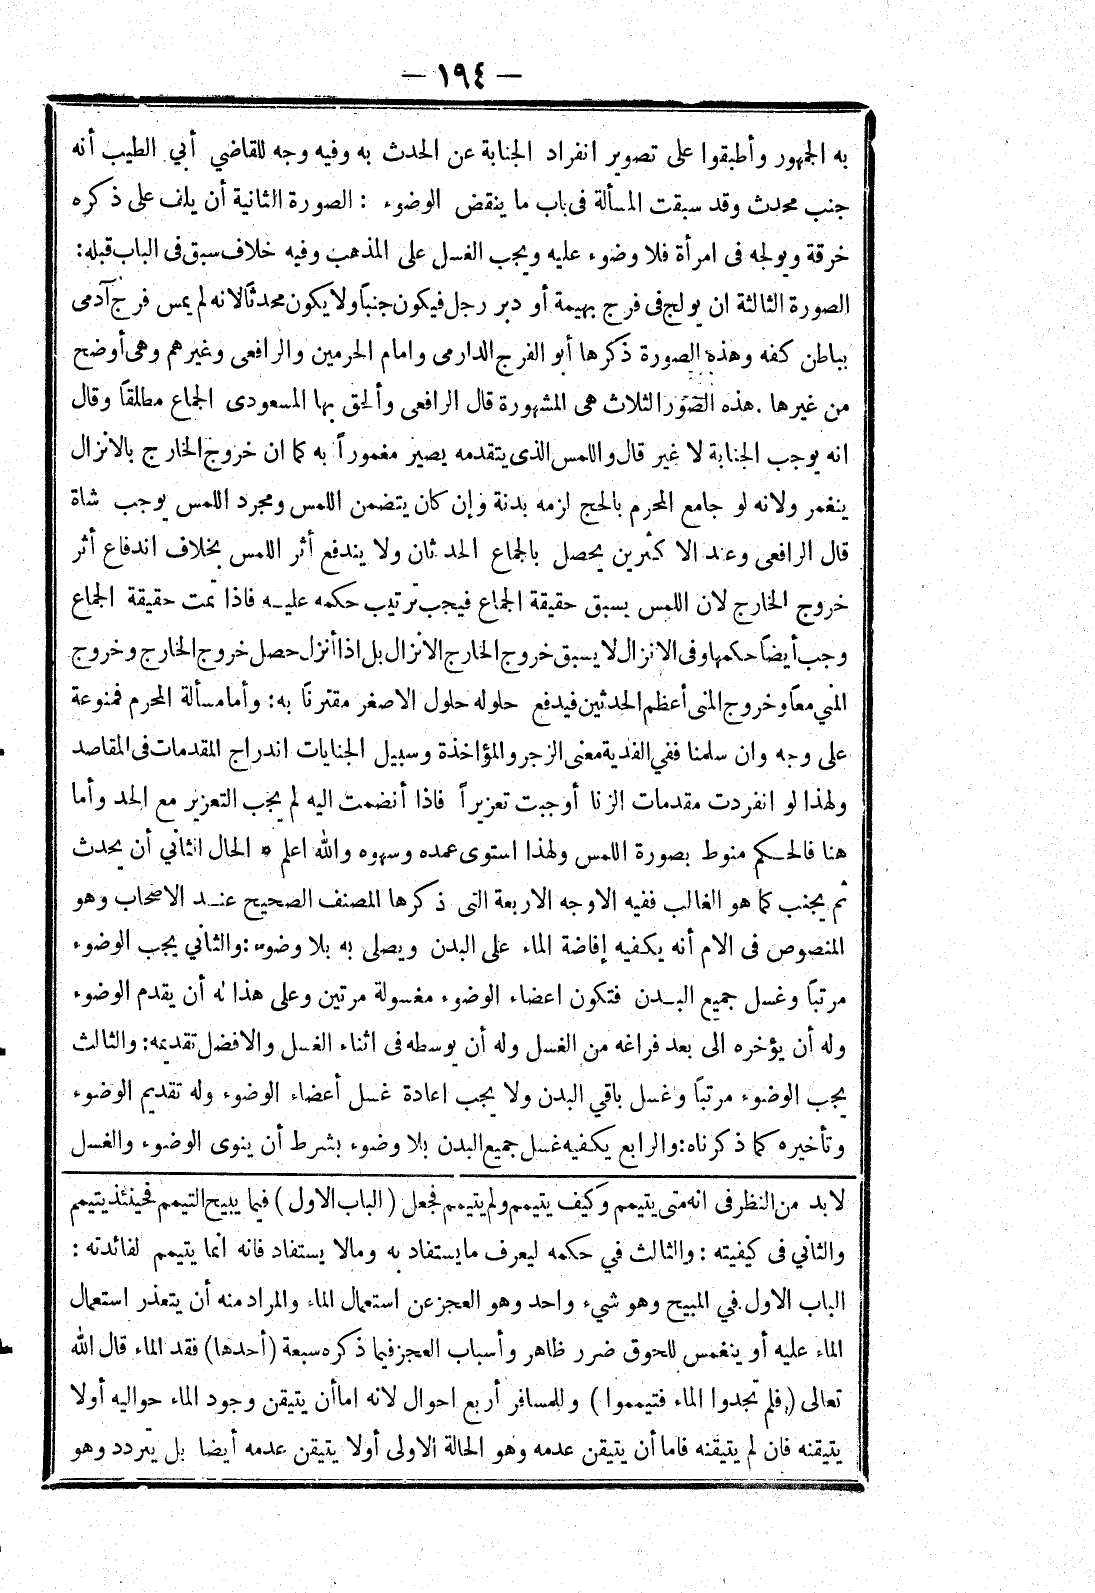 — ١٩٤ —
به الجمهور وأطبقوا على تصوير انفراد الجنابة عن الحدث به وفيه وجه للقاضي أبي الطيب أنه
جنب محدث وقد سبقت المسألة فى باب ما ينقض الوضوء : الصورة الثانية أن يلف على ذكره
خرقة ويولجه فى امرأة فلا وضوء عليه ويجب الغسل على المذهب وفيه خلاف سبق فى الباب قبله:
الصورة الثالثة ان يولج فى فرج بهيمة أو دبر رجل فيكون جنباً ولا يكون محدثاً لانه لم يمس فرج آدمى
بباطن كفه وهذه الصورة ذكرها أبو الفرج الدارمى وامام الحرمين والرافعى وغيرهم وهى أوضح
من غيرها . هذه الصور الثلاث هى المشهورة قال الرافعى وألحق بها المسعودى الجماع مطلقاً وقال
انه يوجب الجنابة لا غير قال واللمس الذى يتقدمه يصير مغموراً به كما ان خروج الخارج بالانزال
ينغمر ولانه لو جامع المحرم بالحج لزمه بدنة وإن كان يتضمن اللمس ومجرد اللمس يوجب شاة
قال الرافعى وعند الاكثرين يحصل بالجماع الحدثان ولا يندفع أثر اللمس بخلاف اندفاع أثر
خروج الخارج لان اللمس يسبق حقيقة الجماع فيجب ترتيب حكمه عليه فاذا تمت حقيقة الجماع
وجب أيضاً حكمها وفى الانزال لا يسبق خروج الخارج الانزال بل اذا أنزل حصل خروج الخارج وخروج
المني معاً وخروج المنى أعظم الحدثين فيدفع حلوله حلول الاصغر مقترنا به: وأما مسألة المحرم فممنوعة
على وجه وان سلمنا ففي الفدية معنى الزجر والمؤاخذة وسبيل الجنايات اندراج المقدمات فى المقاصد
ولهذا لو انفردت مقدمات الزنا أوجبت تعزيراً فاذا أنضمت اليه لم يجب التعزير مع الحد وأما
هنا فالحكم منوط بصورة اللمس ولهذا استوى عمده وسهوه والله اعلم * الحال الثاني أن يحدث
ثم يجنب كما هو الغالب ففيه الاوجه الاربعة التى ذكرها المصنف الصحيح عند الاصحاب وهو
المنصوص فى الام أنه يكفيه إفاضة الماء على البدن ويصلى به بلا وضوء :والثاني يجب الوضوء
مرتباً وغسل جميع البدن فتكون اعضاء الوضوء مغسولة مرتين وعلى هذا له أن يقدم الوضوء
وله أن يؤخره الى بعد فراغه من الغسل وله أن يوسطه فى اثناء الغسل والافضل تقديمه: والثالث
يجب الوضوء مرتباً وغسل باقي البدن ولا يجب اعادة غسل أعضاء الوضوء وله تقديم الوضوء
وتأخيره كما ذكرناه:والرابع يكفيه غسل جميع البدن بلا وضوء بشرط أن ينوى الوضوء والغسل
لابد من النظر فى انه متى يتيمم وكيف يتيمم ولم يتيمم فجعل ( الباب الاول ) فيما يبيح التيمم فحينئذ يتيمم
والثاني فى كيفيته : والثالث في حكمه ليعرف ما يستفاد به ومالا يستفاد فانه انما يتيمم لفائدته :
الباب الاول في المبيح وهو شيء واحد وهو العجز عن استعمال الماء والمراد منه أن يتعذر استعمال
الماء عليه أو ينغمس للحوق ضرر ظاهر وأسباب العجز فيما ذكره سبعة (أحدها) فقد الماء قال الله
تعالى ( فلم تجدوا الماء فتيمموا ) وللمسافر أربع احوال لانه اما أن يتيقن وجود الماء حواليه أولا
يتيقنه فان لم يتيقنه فاما أن يتيقن عدمه وهو الحالة الاولى أولا يتيقن عدمه أيضا بل يتردد وهو